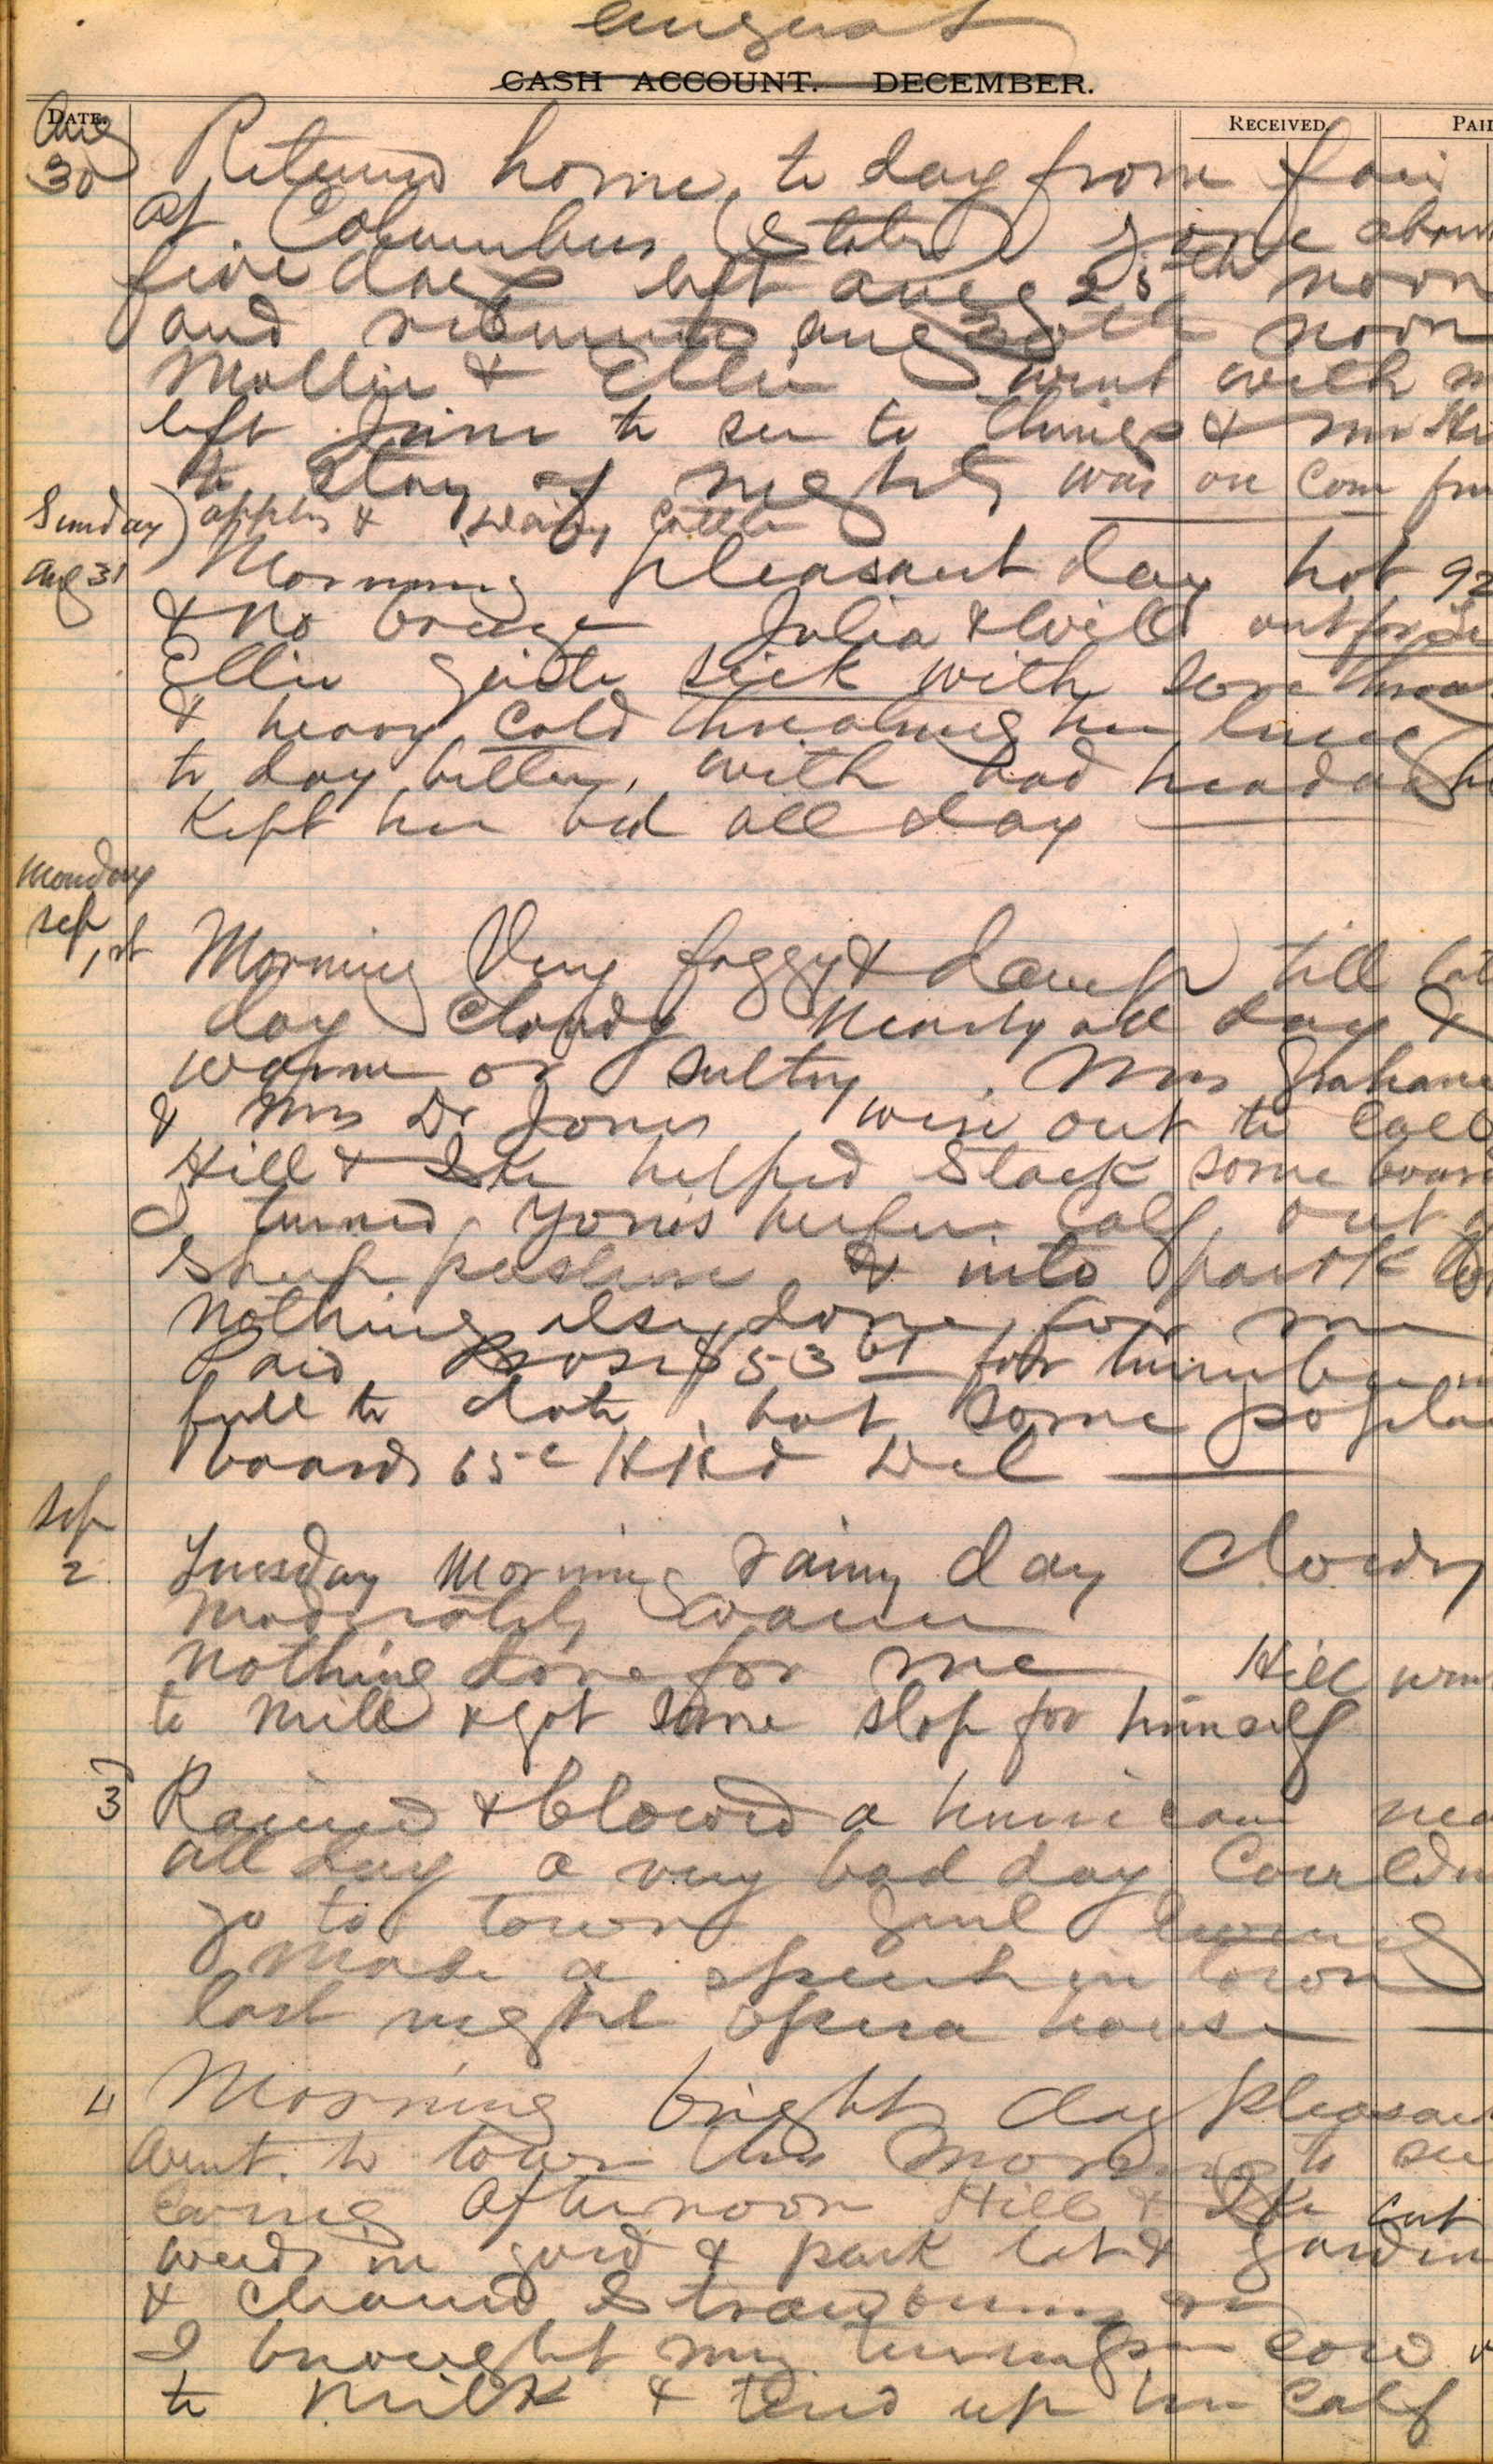 August
CASH ACCOUNT. DECEMBER.
DATE. RECEIVED. PAID
Aug 30 Returned home to day from fair
at Columbus (State) gone about
five days left aug 25th noon
and returned aug 30th noon
Mollie & Ellie went with
left Jim to see to things & Mr
to stay of nights was on Com
apples & Dairy Cattle
Sunday Aug 31 Morning pleasant day hot 92
& no breeze Julia & Will out for
Ellie quite sick with sore throat
& heavy cold threatning her lungs
to day better, with bad headache
Kept her bed all day
Monday
Sep 1st Morning Very foggy & damp till
day cloudy nearly all day &
warm or sultry. Mrs Graham
& Mrs Dr Jones were out to call
Hill & Ike helped Stack some
I turned Yonis heifer Calf out
sheep pasture & into park lot
nothing else done for me
Paid $53 for lumber in
full to date, but some poplar
boards 65c Del
Sep 2 Tuesday Morning rainy day Cloudy
moderately warm
nothing done for me Hill
to mill & got some slop for himself
3 Rained & blowed a hurricane
all day a very bad day Couldn
go to town Genl Ewing
Made a speech in town
last night opera house
4 Morning bright day pleasant
Went to town this morning to see
Ewing Afternoon Hill & Ike Cut
weeds in yard & park lot & garden
& cleaned Strawberry
I brought my cow
to milk & tied up her Calf